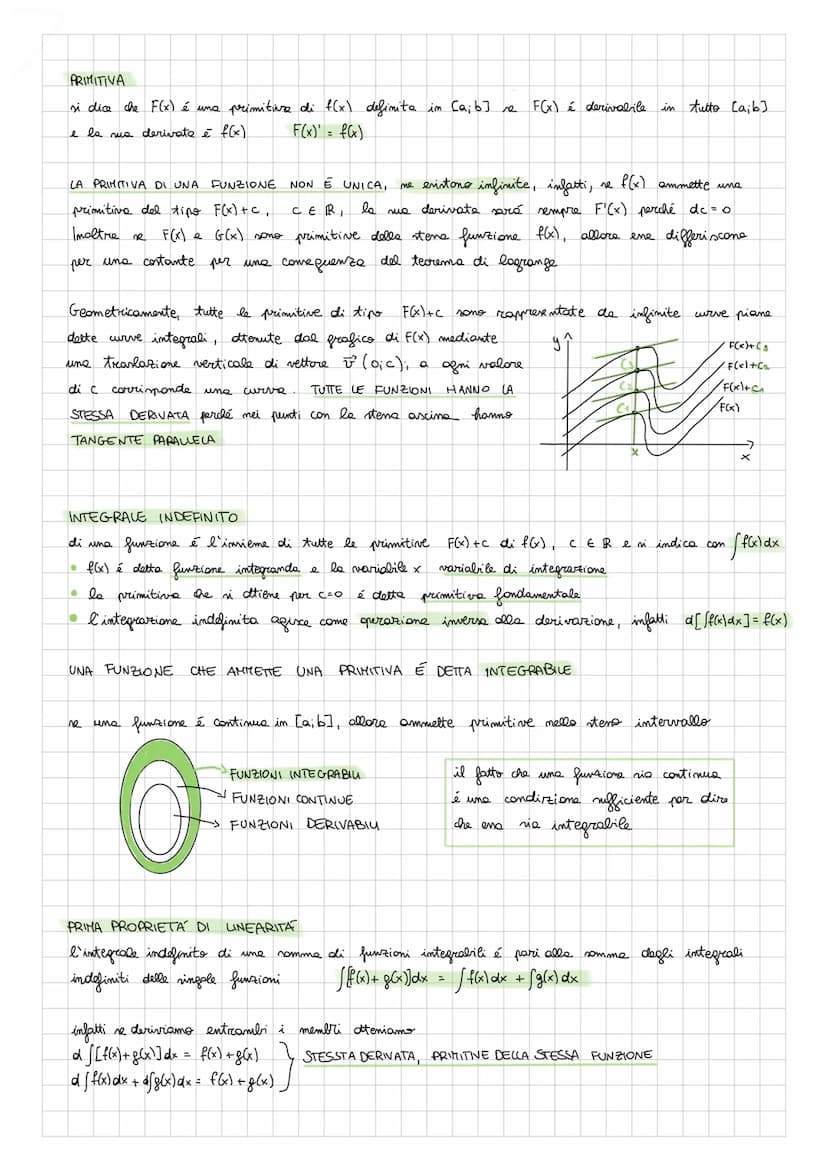 PRIMITIVA
si dice che F(x) é una primitiva di f(x) definita in [a;b] se F(x) é derivabile in tutto [a;b]
e la sua derivata é f(x) F(x)' = f(x)
LA PRIMITIVA DI UNA FUNZIONE NON É UNICA, ne esistono infinite, infatti, se f(x) ammette una
primitiva del tipo F(x)+c, c ∈ ℝ, la sua derivata sará sempre F'(x) perché dc = 0
Inoltre se F(x) e G(x) sono primitive della stessa funzione f(x), allora esse differiscono
per una costante per una conseguenza del teorema di lagrange
Geometricamente, tutte le primitive di tipo F(x)+c sono rappresentate da infinite curve piane
dette curve integrali, ottenute dal grafico di F(x) mediante
una traslazione verticale di vettore v⃗ (0;c); a ogni valore
di c corrisponde una curva. TUTTE LE FUNZIONI HANNO LA
STESSA DERIVATA perché nei punti con la stessa ascissa hanno
TANGENTE PARALLELA
y
F(x)+C3
F(x)+C2
F(x)+C1
F(x)
C3
C2
C1
x
x
INTEGRALE INDEFINITO
di una funzione é l'insieme di tutte le primitive F(x)+c di f(x), c ∈ ℝ e si indica con ∫f(x)dx
• f(x) é detta funzione integranda e la variabile x variabile di integrazione
• la primitiva che si ottiene per c=0 é detta primitiva fondamentale
• l'integrazione indefinita agisce come operazione inversa alla derivazione, infatti d[∫f(x)dx] = f(x)
UNA FUNZIONE CHE AMMETTE UNA PRIMITIVA É DETTA INTEGRABILE
se una funzione é continua in [a;b], allora ammette primitive nello stesso intervallo
FUNZIONI INTEGRABILI
FUNZIONI CONTINUE
FUNZIONI DERIVABILI
il fatto che una funzione sia continua
é una condizione sufficiente per dire
che essa sia integrabile
PRIMA PROPRIETÁ DI LINEARITÁ
l'integrale indefinito di una somma di funzioni integrabili é pari alla somma degli integrali
indefiniti delle singole funzioni ∫[f(x)+g(x)]dx = ∫f(x)dx + ∫g(x)dx
infatti se deriviamo entrambi i membri otteniamo
d∫[f(x)+g(x)]dx = f(x)+g(x)
d∫f(x)dx + d∫g(x)dx = f(x)+g(x)
STESSTA DERIVATA, PRIMITIVE DELLA STESSA FUNZIONE